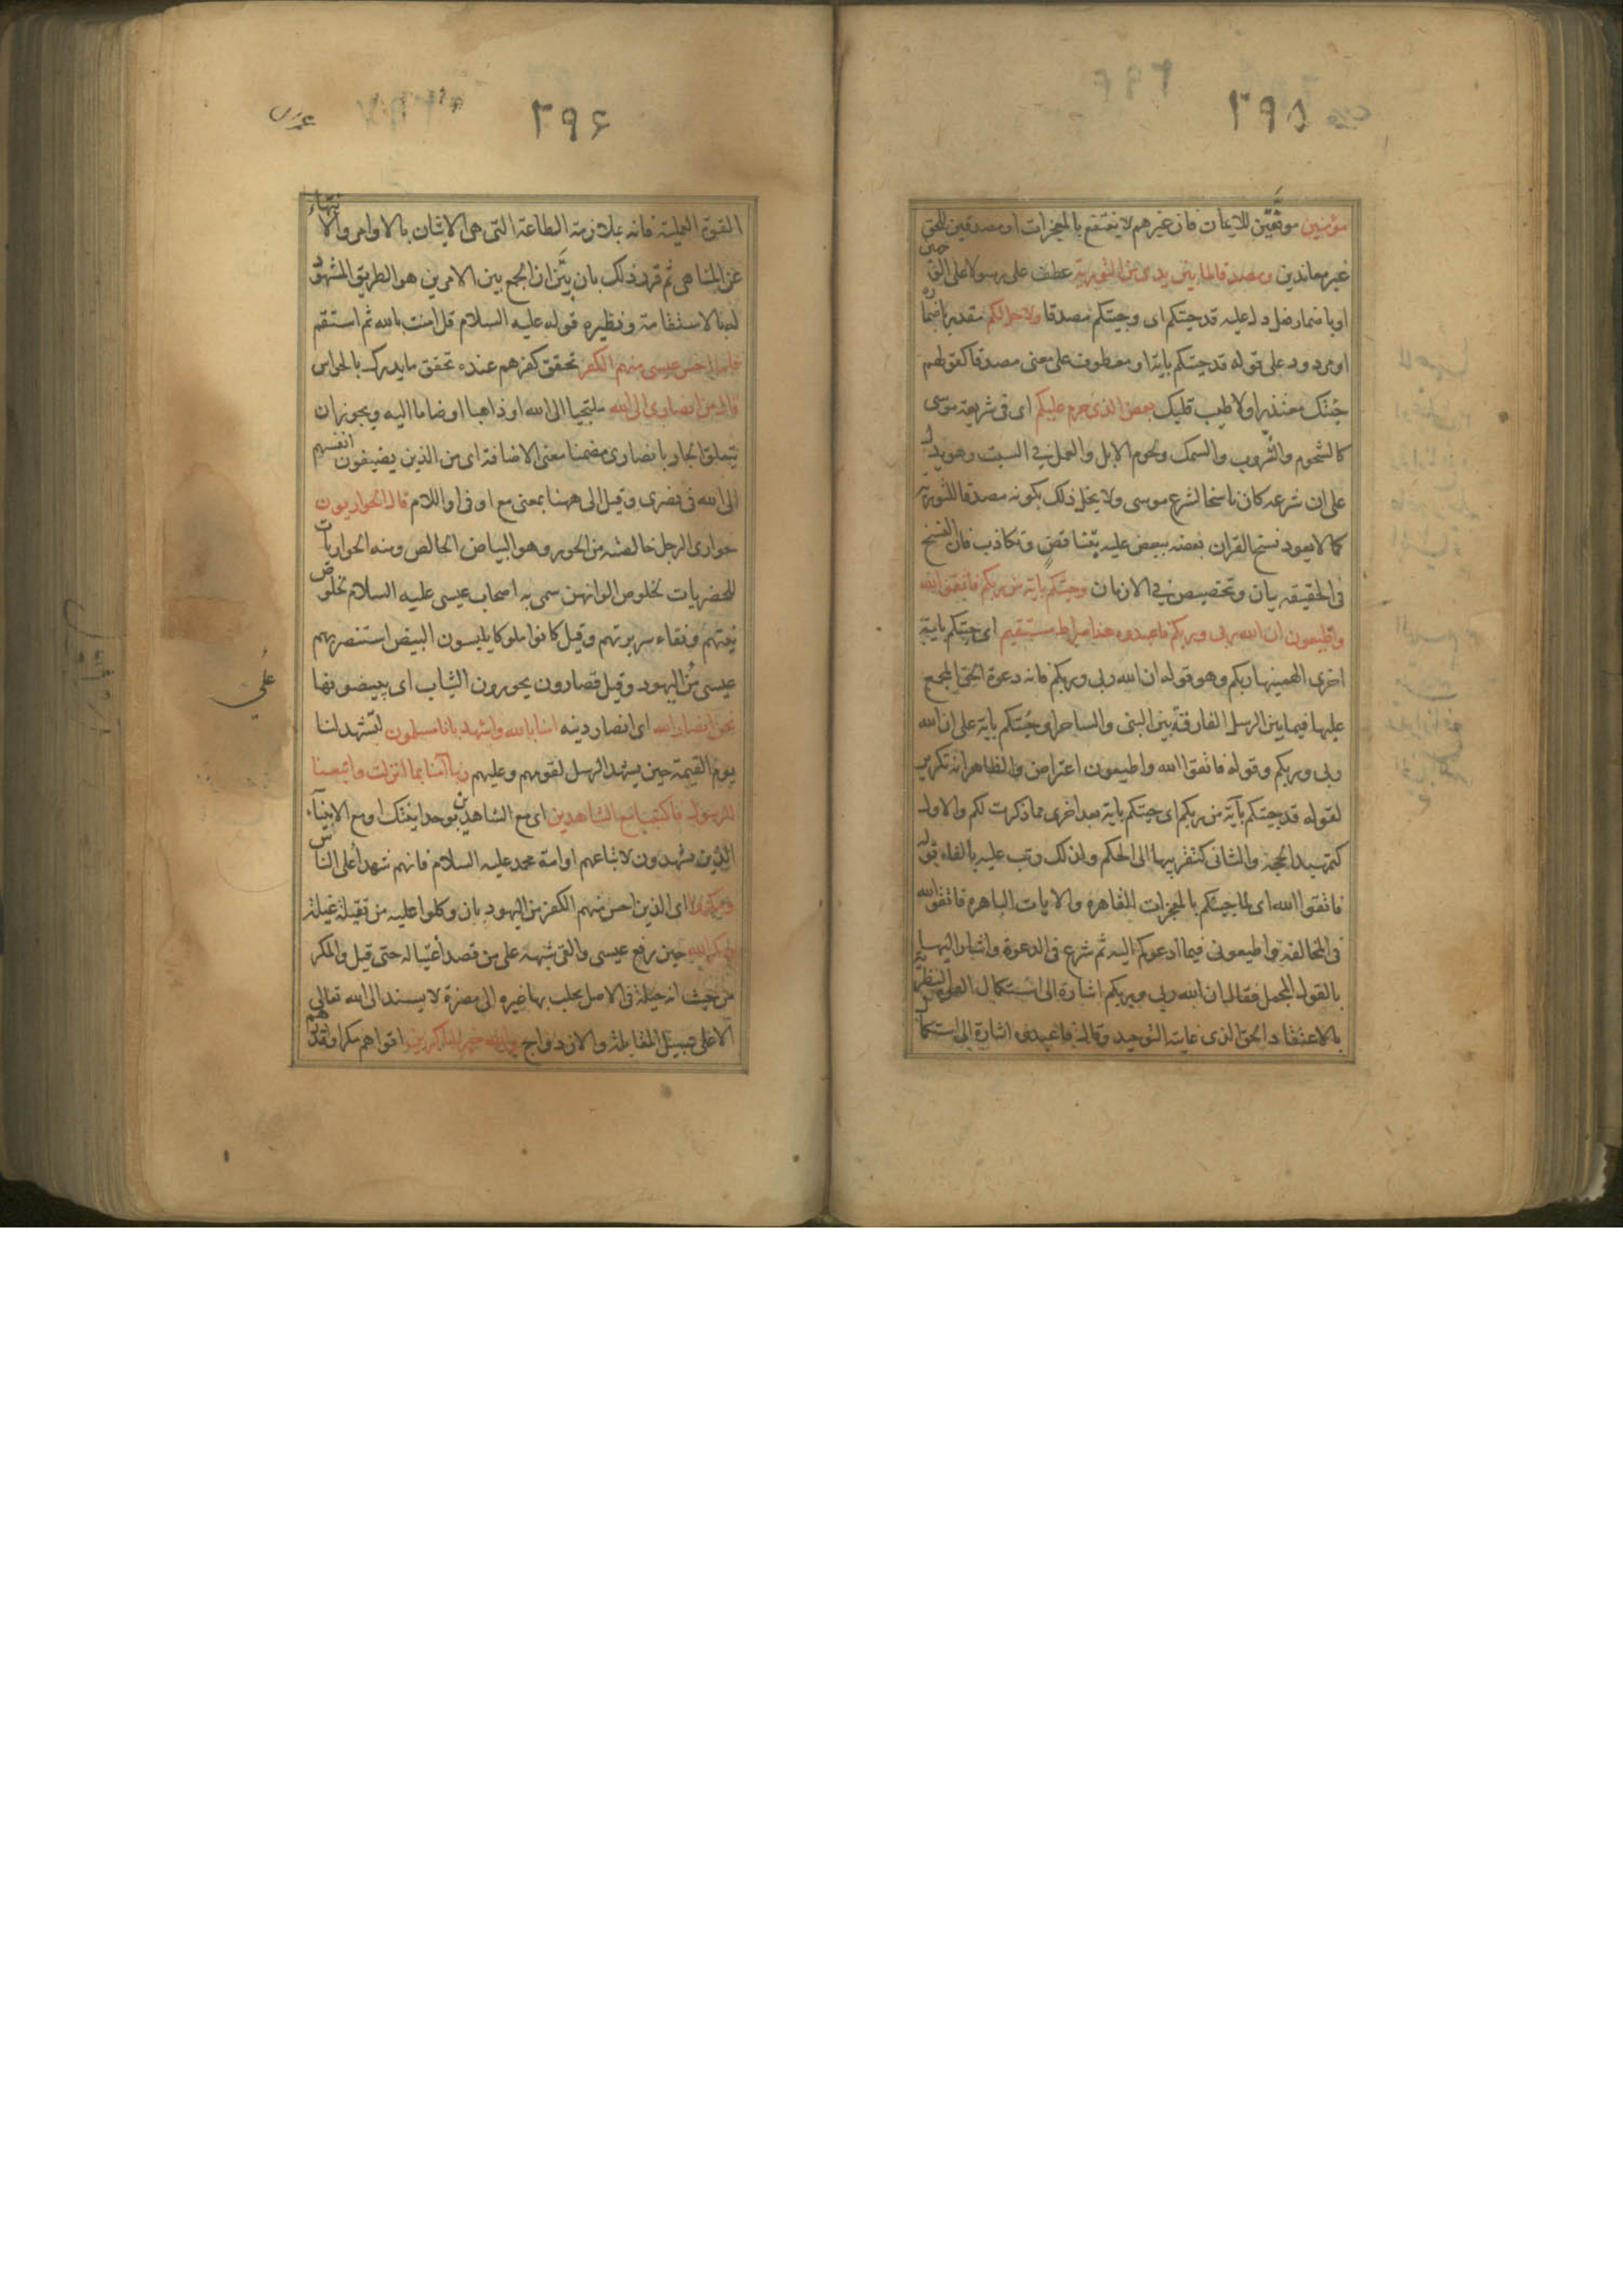 ٢٩٥
مؤمنين موفقين للايمان فان غيرهم لا ينتفع بالمعجزات او مصدقين للحق
غير معاندين ومصدقا لما بين يدى من التورية عطف على رسولا على الوجهين
او باضمار فعل دل عليه قد جئتكم اى وجئتكم مصدقا ولاحل لكم مقدر باضماره
او مردود على قوله قد جئتكم باية او معطوف على معنى مصدقا كقولهم
جئتك معتذرا ولاطيب قلبك بعض الذى حرم عليكم اى فى شريعة موسى
كالشحوم والثروب والسمك ولحوم الابل والعمل فى السبت وهو يدل
على ان شرعه كان ناسخا لشرع موسى ولا يخل ذلك بكونه مصدقا للتورية
كما لا يعود نسخ القران بعضه ببعض عليه بتناقض وتكاذب فان النسخ
فى الحقيقه بيان وتخصيص فى الازمان وجئتكم باية من ربكم فاتقوا الله
واطيعون ان الله ربى وربكم فاعبدوه هذا صراط مستقيم اى جئتكم باية
اخرى الهمنيها ربكم وهو قوله ان الله ربى وربكم فانه دعوة الحق المجمع
عليها فيما بين الرسل الفارقة بين النبى والساحر او جئتكم باية على ان الله
ربى وربكم وقوله فاتقوا الله واطيعون اعتراض والظاهر انه تكرير
لقوله قد جئتكم بآية من ربكم اى جئتكم باية بعد اخرى مما ذكرت لكم والاول
كتمهيد الحجة والثانى كتقريبها الى الحكم ولذلك رتب عليه بالفاء قوله
فاتقوا الله اى لما جئتكم بالمعجزات القاهره والايات الباهره فاتقوا الله
فى المخالفة واطيعونى فيما ادعوكم اليه ثم شرع فى الدعوة واشار اليها
بالقول المجمل فقال ان الله ربى وربكم اشارة الى استكمال القوة النظرية
بالاعتقاد الحق الذى غايته التوحيد وقال فاعبدوه اشارة الى استكمال
٢٩۶
القوة العملية فانه بملازمة الطاعة التى هى الاتيان بالاوامر والانتهاء
عن المناهى ثم قرر ذلك بان بيّن ان الجمع بين الامرين هو الطريق المشهود
له بالاستقامة ونظيره قوله عليه السلام قل امنت بالله ثم استقم
فلما احس عيسى منهم الكفر تحقق كفرهم عنده تحقق ما يدرك بالحواس
قال من انصارى الى الله ملتجيا الى الله او ذاهبا او ضاما اليه ويجوز ان
يتعلق الجار بانصارى مضمنا معنى الاضافة اى من الذين يضيفون انفسهم
الى الله فى نصرى وقيل الى ههنا بمعنى مع او فى او اللام قال الحواريون
حوارى الرجل خالصته من الحور وهو البياض الخالص ومنه الحواريات
للحضريات لخلوص الوانهن سمى به اصحاب عيسى عليه السلام لخلوص
نيتهم ونقاء سريرتهم وقيل كانوا ملوكا يلبسون البيض استنصر بهم
عيسى من اليهود وقيل قصارون يحورون الثياب اى يبيضونها
نحن انصار الله اى انصار دينه امنا بالله واشهد بانا مسلمون لتشهد لنا
يوم القيمة حين يشهد الرسل لقومهم وعليهم ربنا آمنا بما انزلت واتبعنا
الرسول فاكتبنا مع الشاهدين اى مع الشاهدين بوحدانيتك او مع الانبياء
الذين يشهدون لاتباعهم او امة محمد عليه السلام فانهم شهدا على الناس
ومكروا اى الذين احس منهم الكفر من اليهود بان وكلوا عليه من يقتله غيلة
ومكر الله حين رفع عيسى والقى شبهه على من قصد اغتياله حتى قتل والمكر
من حيث انه حيلة فى الاصل يجلب بها غيره الى مضرة لا يسند الى الله تعالى
الا على سبيل المقابلة والازدواج والله خير الماكرين اقواهم مكرا واقدرهم